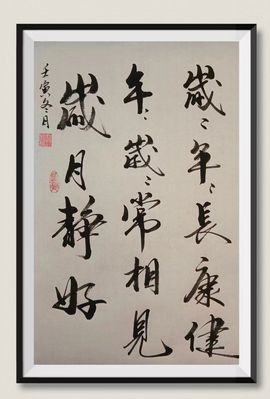 歳〻年〻長康健
年〻歳〻常相見
歳月静好
壬寅冬月